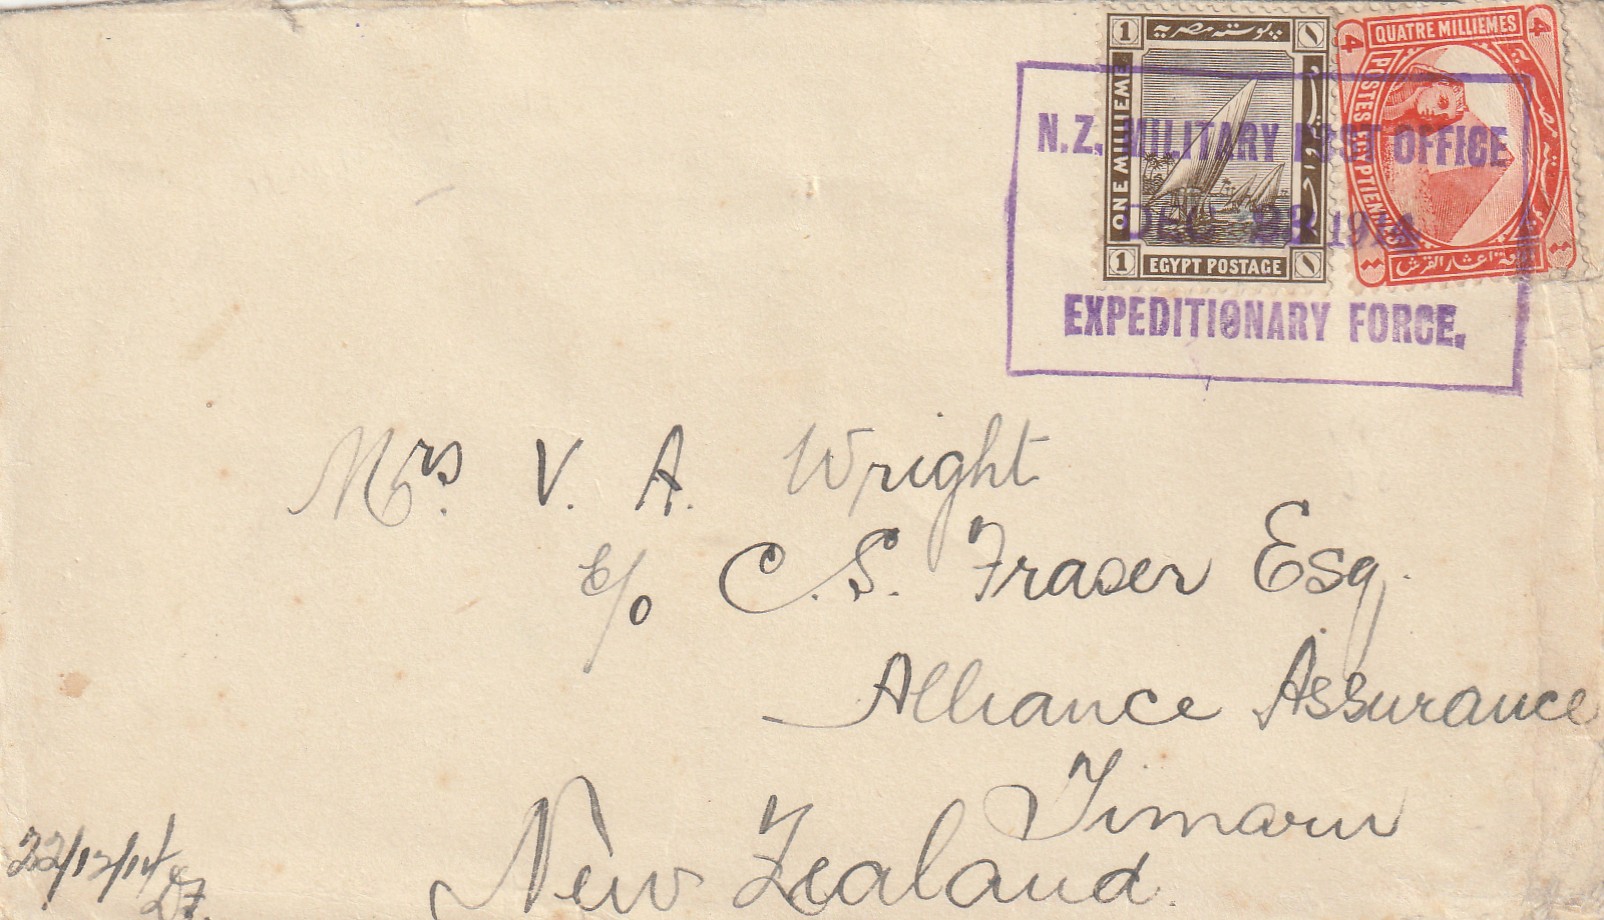 1 بوسته مصريه ١
ONE MILLIEME
1 EGYPT POSTAGE ١
4 QUATRE MILLIEMES 4
POSTES EGYPTIENNES
N.Z. MILITARY POST OFFICE
DEC 23 1914
EXPEDITIONARY FORCE.
Mrs. V. A. Wright
c/o C. S. Fraser Esq.
Alliance Assurance
Timaru
New Zealand.
22/12/14